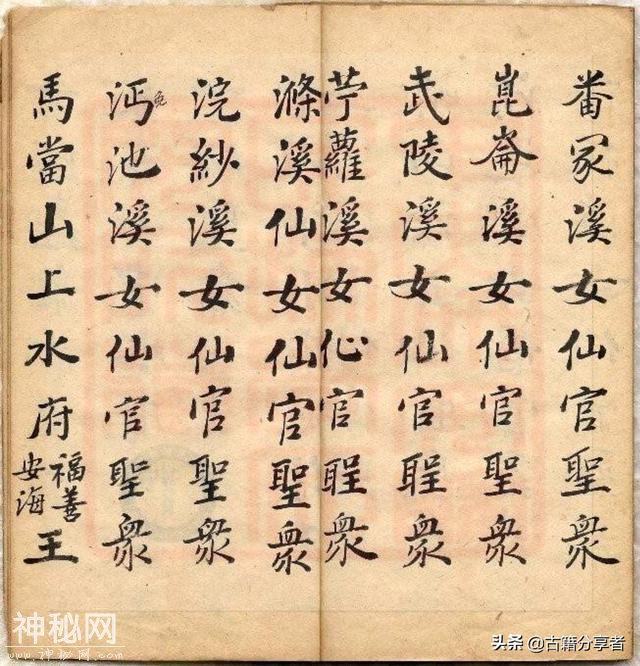 番冢溪女仙官聖衆
崑崙溪女仙官聖衆
武陵溪女仙官聖衆
苧蘿溪女仙官聖衆
滌溪仙女仙官聖衆
浣紗溪女仙官聖衆
沔池溪女仙官聖衆
馬當山上水府福善安海王
神秘网
头条 @古籍分享者